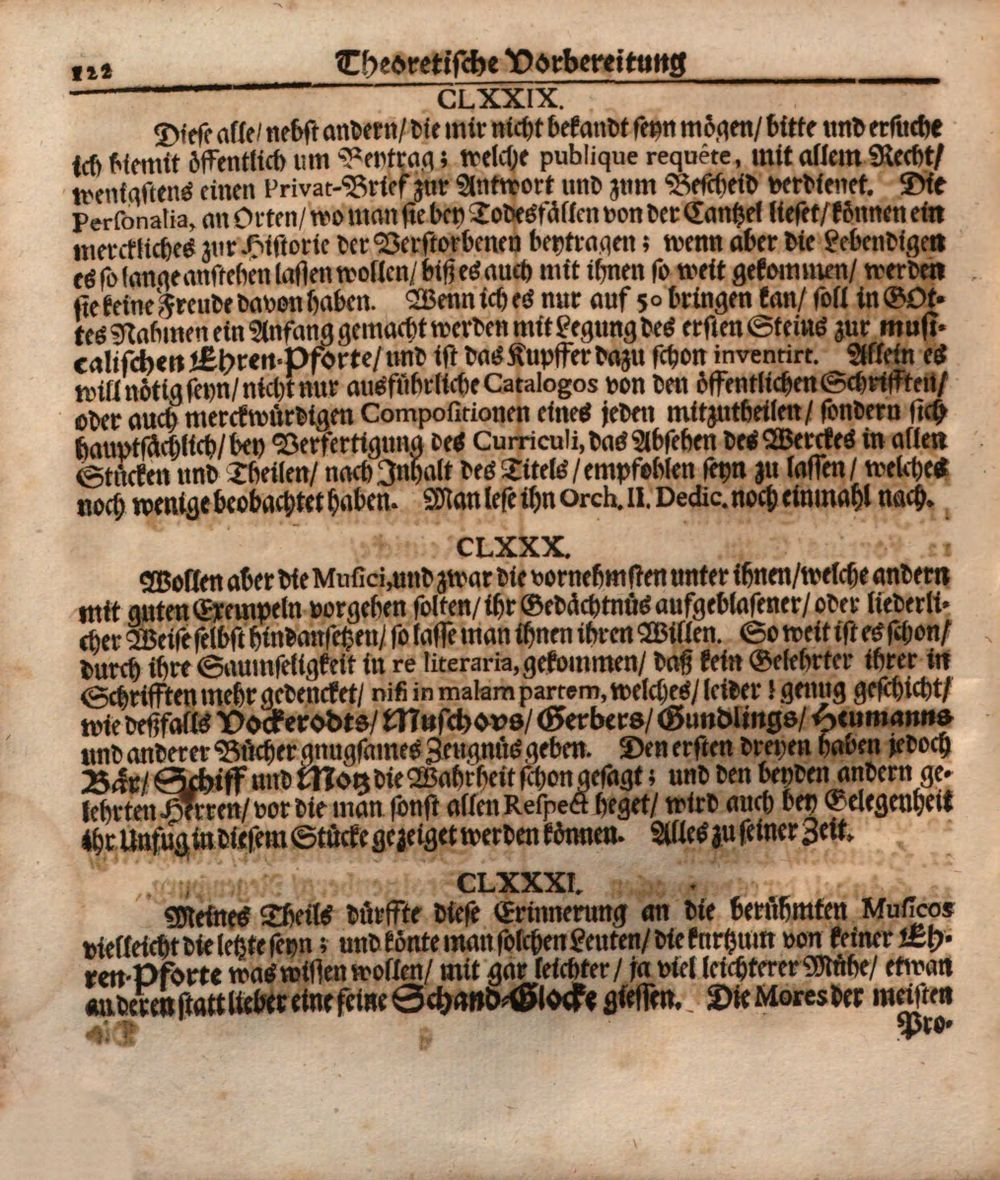 122 Theoretische Vorbereitung
CLXXIX.
Diese alle/ nebst andern/ die mir nicht bekandt seyn mögen/ bitte und ersuche
ich hiemit öffentlich um Beytrag; welche publique requête, mit allem Recht/
wenigstens einen Privat-Brief zur Antwort und zum Bescheid verdienet. Die
Personalia, an Orten/ wo man sie bey Todesfällen von der Cantzel lieset/ können ein
merckliches zur Historie der Verstorbenen beytragen; wenn aber die Lebendigen
es so lange anstehen lassen wollen/ biß es auch mit ihnen so weit gekommen/ werden
sie keine Freude davon haben. Wenn ich es nur auf 50 bringen kan/ soll in GOt-
tes Nahmen ein Anfang gemacht werden mit Legung des ersten Steins zur musi-
calischen Ehren-Pforte/ und ist das Kupffer dazu schon inventirt. Allein es
will nötig seyn/ nicht nur ausführliche Catalogos von den öffentlichen Schrifften/
oder auch merckwürdigen Compositionen eines jeden mitzutheilen/ sondern sich
hauptsächlich/ bey Verfertigung des Curriculi, das Absehen des Werckes in allen
Stücken und Theilen/ nach Inhalt des Titels/ empfohlen seyn zu lassen/ welches
noch wenige beobachtet haben. Man lese ihn Orch. II. Dedic. noch einmahl nach.
CLXXX.
Wollen aber die Musici, und zwar die vornehmsten unter ihnen/ welche andern
mit guten Exempeln vorgehen solten/ ihr Gedächtnüs aufgeblasener/ oder liederli-
cher Weise selbst hindansetzen/ so lasse man ihnen ihren Willen. So weit ist es schon/
durch ihre Saumseligkeit in re literaria, gekommen/ daß kein Gelehrter ihrer in
Schrifften mehr gedencket/ nisi in malam partem, welches/ leider! genug geschicht/
wie deßfalls Vockerodts/ Muschovs/ Gerbers/ Gundlings/ Heumanns
und anderer Bücher gnugsames Zeugnüs geben. Den ersten dreyen haben jedoch
Bär/ Schiff und Motz die Wahrheit schon gesagt; und den beyden andern ge-
lehrten Herren/ vor die man sonst allen Respect heget/ wird auch bey Gelegenheit
ihr Unfug in diesem Stücke gezeiget werden können. Alles zu seiner Zeit.
CLXXXI.
Meines Theils dürffte diese Erinnerung an die berühmten Musicos
vielleicht die letzte seyn; und könte man solchen Leuten/ die kurtzum von keiner Eh-
ren-Pforte was wissen wollen/ mit gar leichter/ ja viel leichterer Mühe/ etwan
an deren statt lieber eine feine Schand-Glocke giessen. Die Mores der meisten
Pro-